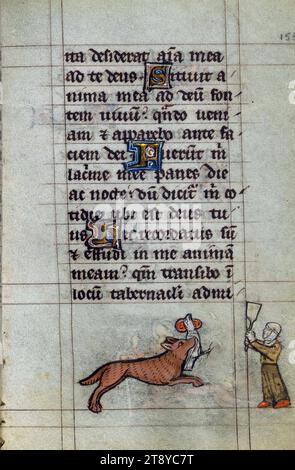 153
ita desiderat aīa mea
ad te deus Sitiuit a
nima mea ad deū fon
tem uiuū qn̄do ueni
am & apparebo ante fa
ciem dei Fuerunt m̄
lac̄me mee panes die
ac nocte dū dicit̄ m̄ co
tidie ubi est deus tu
us Hec recordatus sū
& effudi in me animam
meam qm̄ transibo ī
locū tabernacli admi
alamy
Image ID: 2T8YC7T
www.alamy.com